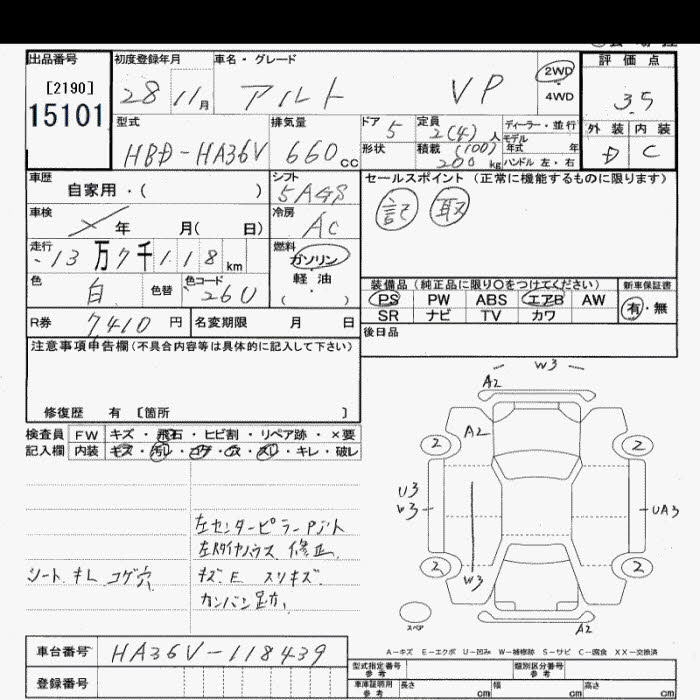 出品番号 初度登録年月 車名・グレード 評価点
[2190] 28 11月 アルト VP 2WD ・4WD 3.5
15101
型式 排気量 ドア 5 定員 2(4)人 ディーラー・並行 外装 内装
モデル年式 年
HBD-HA36V 660cc 形状 積載 (100) 200kg ハンドル 左・右 D C
車歴 シフト セールスポイント (正常に機能するものに限ります)
自家用・( ) 5AGS 記 取
車検 年 月( 日) 冷房 AC
走行 13万7千118km 燃料 ガソリン
軽・油
( )
色 白 色替 色コード 26U
装備品 (純正品に限り○をつけてください) 新車保証書
PS PW ABS エアB AW 有・無
SR ナビ TV カワ
R券 7410円 名変期限 月 日 後日品
注意事項申告欄(不具合内容等は具体的に記入して下さい)
修復歴 有 [箇所 ]
検査員 FW キズ・飛石・ヒビ割・リペア跡・×要
記入欄 内装 キズ・汚レ・コゲ・穴・スレ・キレ・破レ
左センターピラーPジト
左Rタイヤハウス 修正
シート キレ コゲ穴 キズ E スリキズ
カンバン跡
W3
A2
2 A2 2
U3
W3 UA3
2 W3 2
スペア A2
A-キズ E-エクボ U-凹み W-補修跡 S-サビ C-腐食 XX-交換済
車台番号 HA36V-118439
型式指定番号 参考 類別区分番号 参考
登録番号 車庫証明用 参考 長さ cm 幅 cm 高さ cm